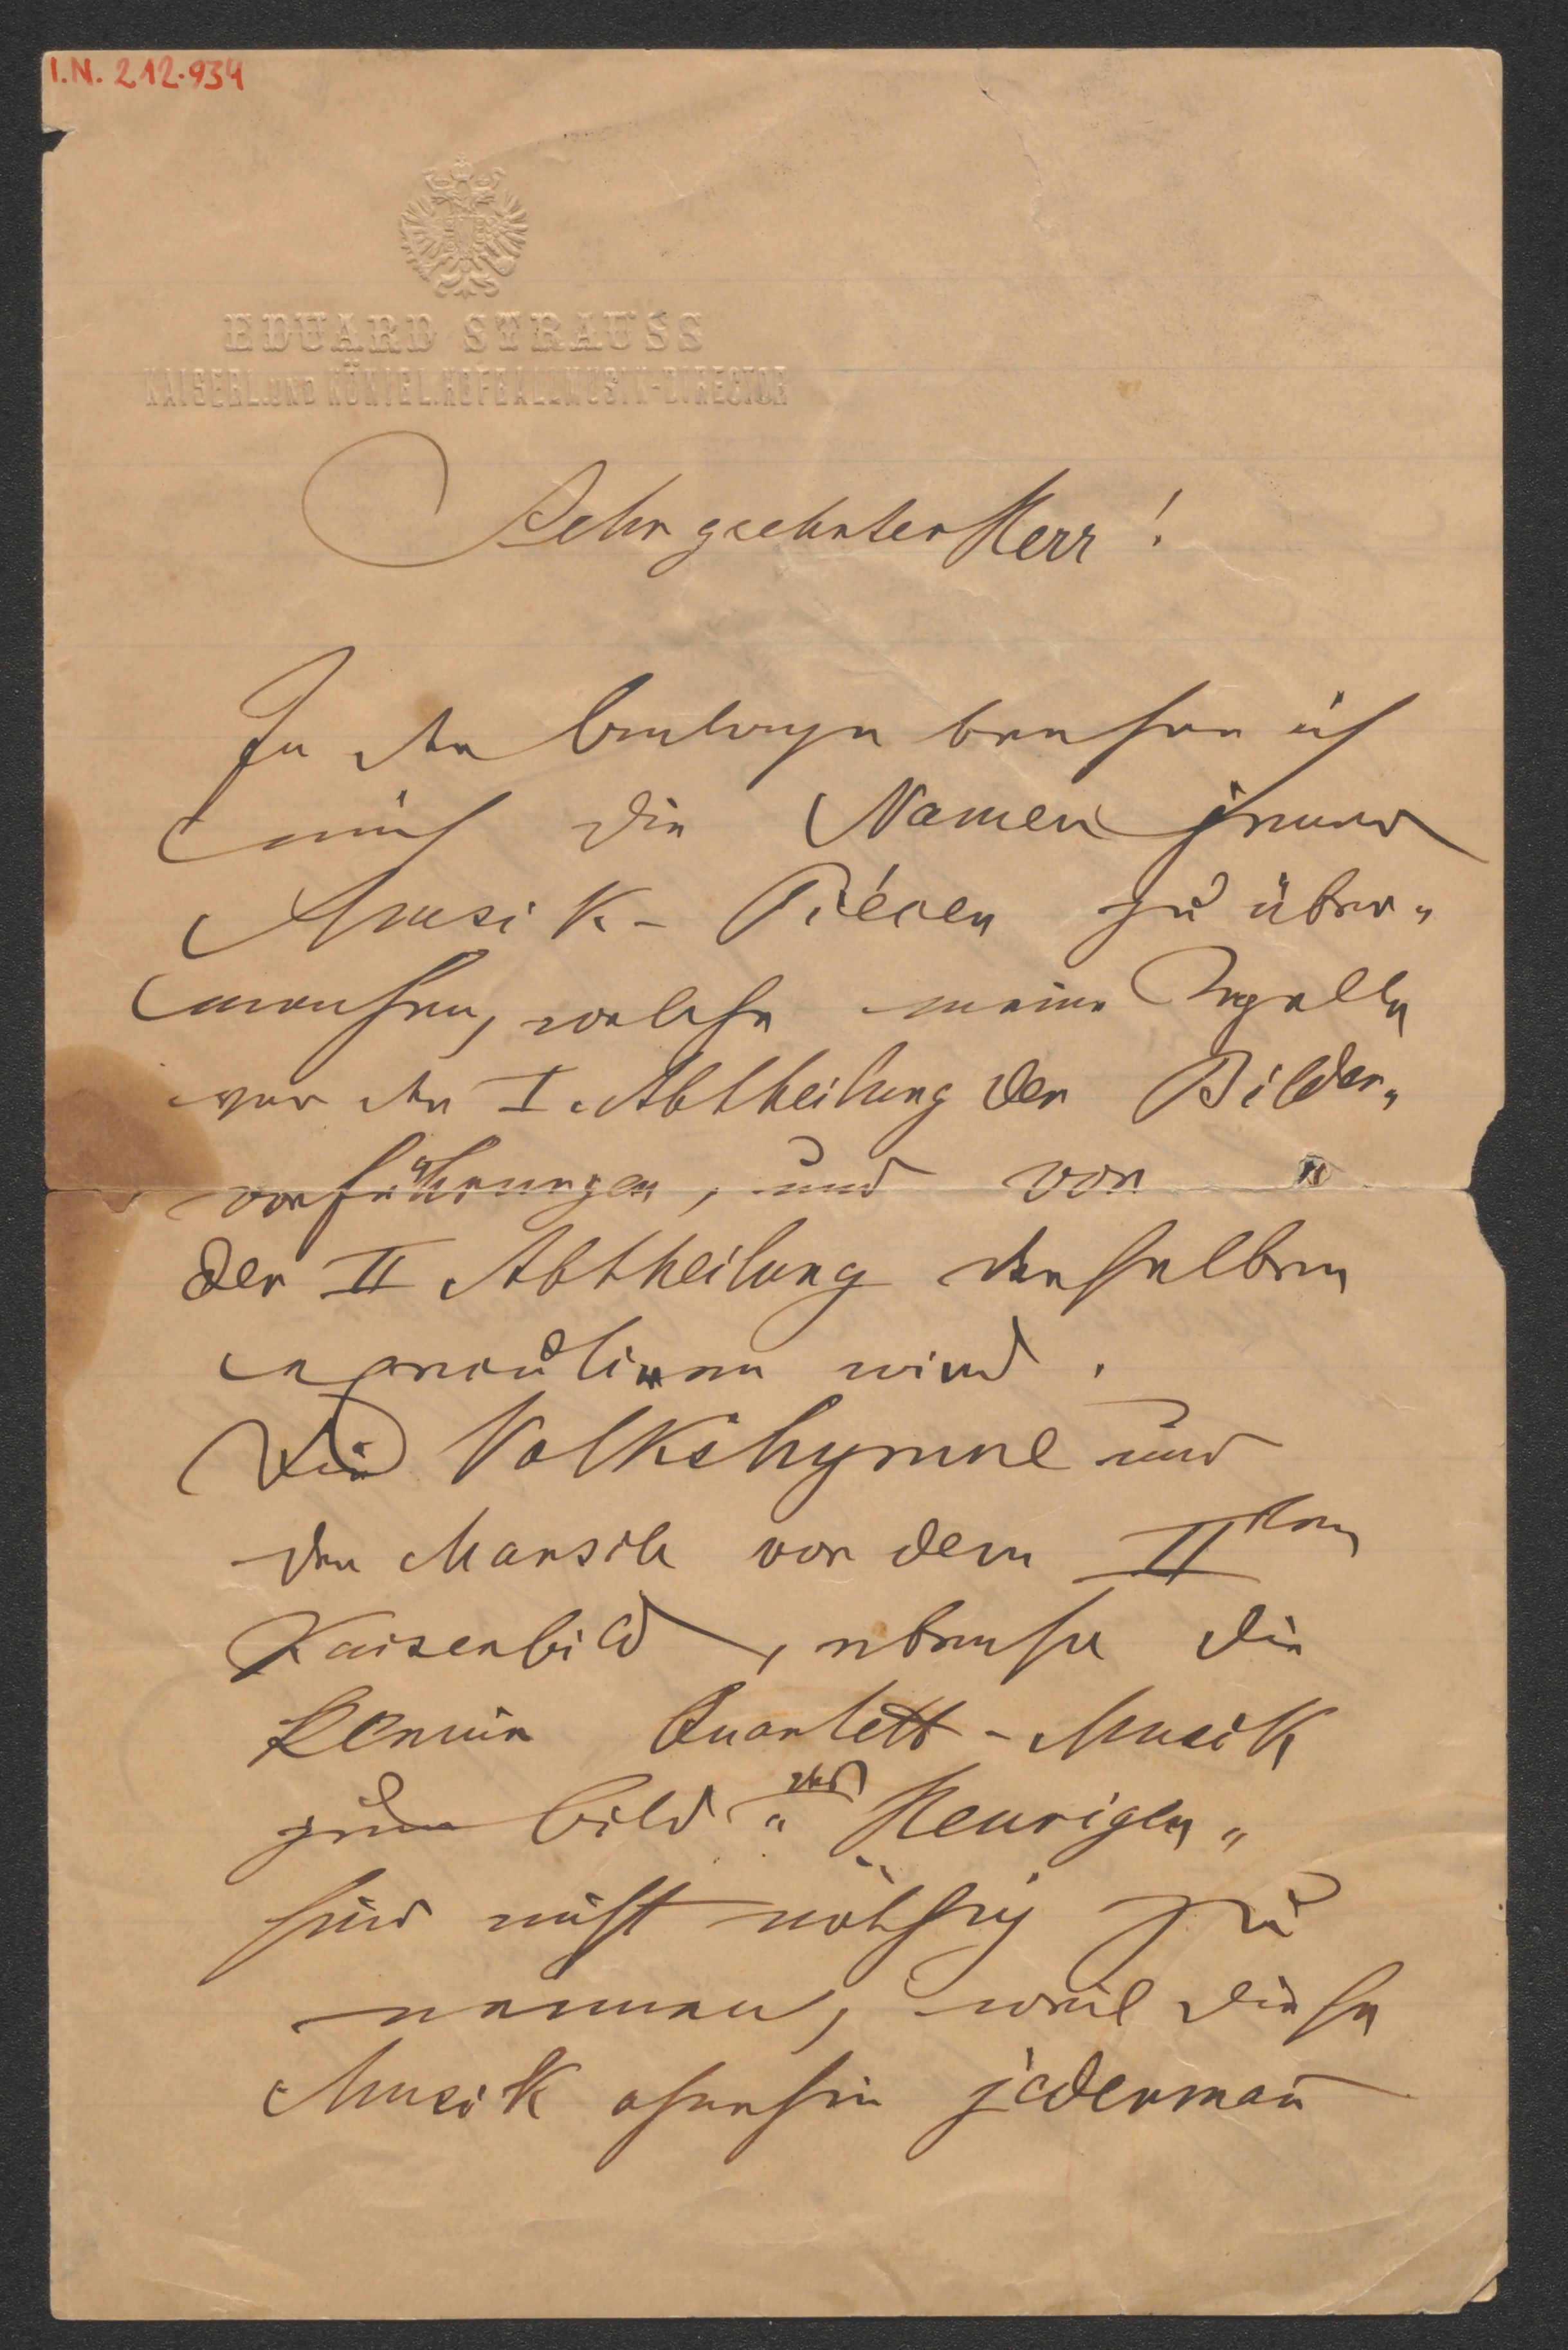 I.N. 212.934
EDUARD STRAUSS
KAISERL. UND KÖNIGL. HOFBALLMUSIK-DIRECTOR
Sehr geehrter Herr!
In der Beilage beehre ich
mich die Namen jener
Musik-Piécen zu über-
machen, welche meine Capelle
vor der I. Abtheilung der Bilder-
vorführungen, und vor
der II Abtheilung derselben
executieren wird.
Die Volkshymne und
den Marsch vor dem IIten
Kaiserbild, ebenso die
Quartett-Musik
zum Bild "der Heurigen"
sind nicht nöthig zu
nennen, weil diese
Musik ohnehin jederman̄